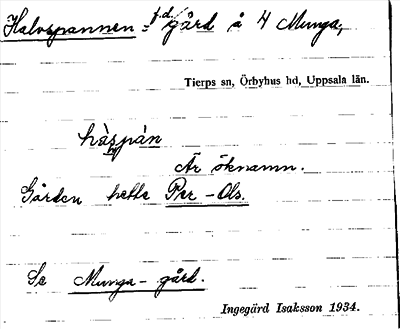 Halvspannen - f.d. gård å 4 Munga,
Tierps sn, Örbyhus hd, Uppsala län.
hàspán
Är öknamn.
Gården hette Per-Ols.
Se Munga-gård.
Ingegärd Isaksson 1934.